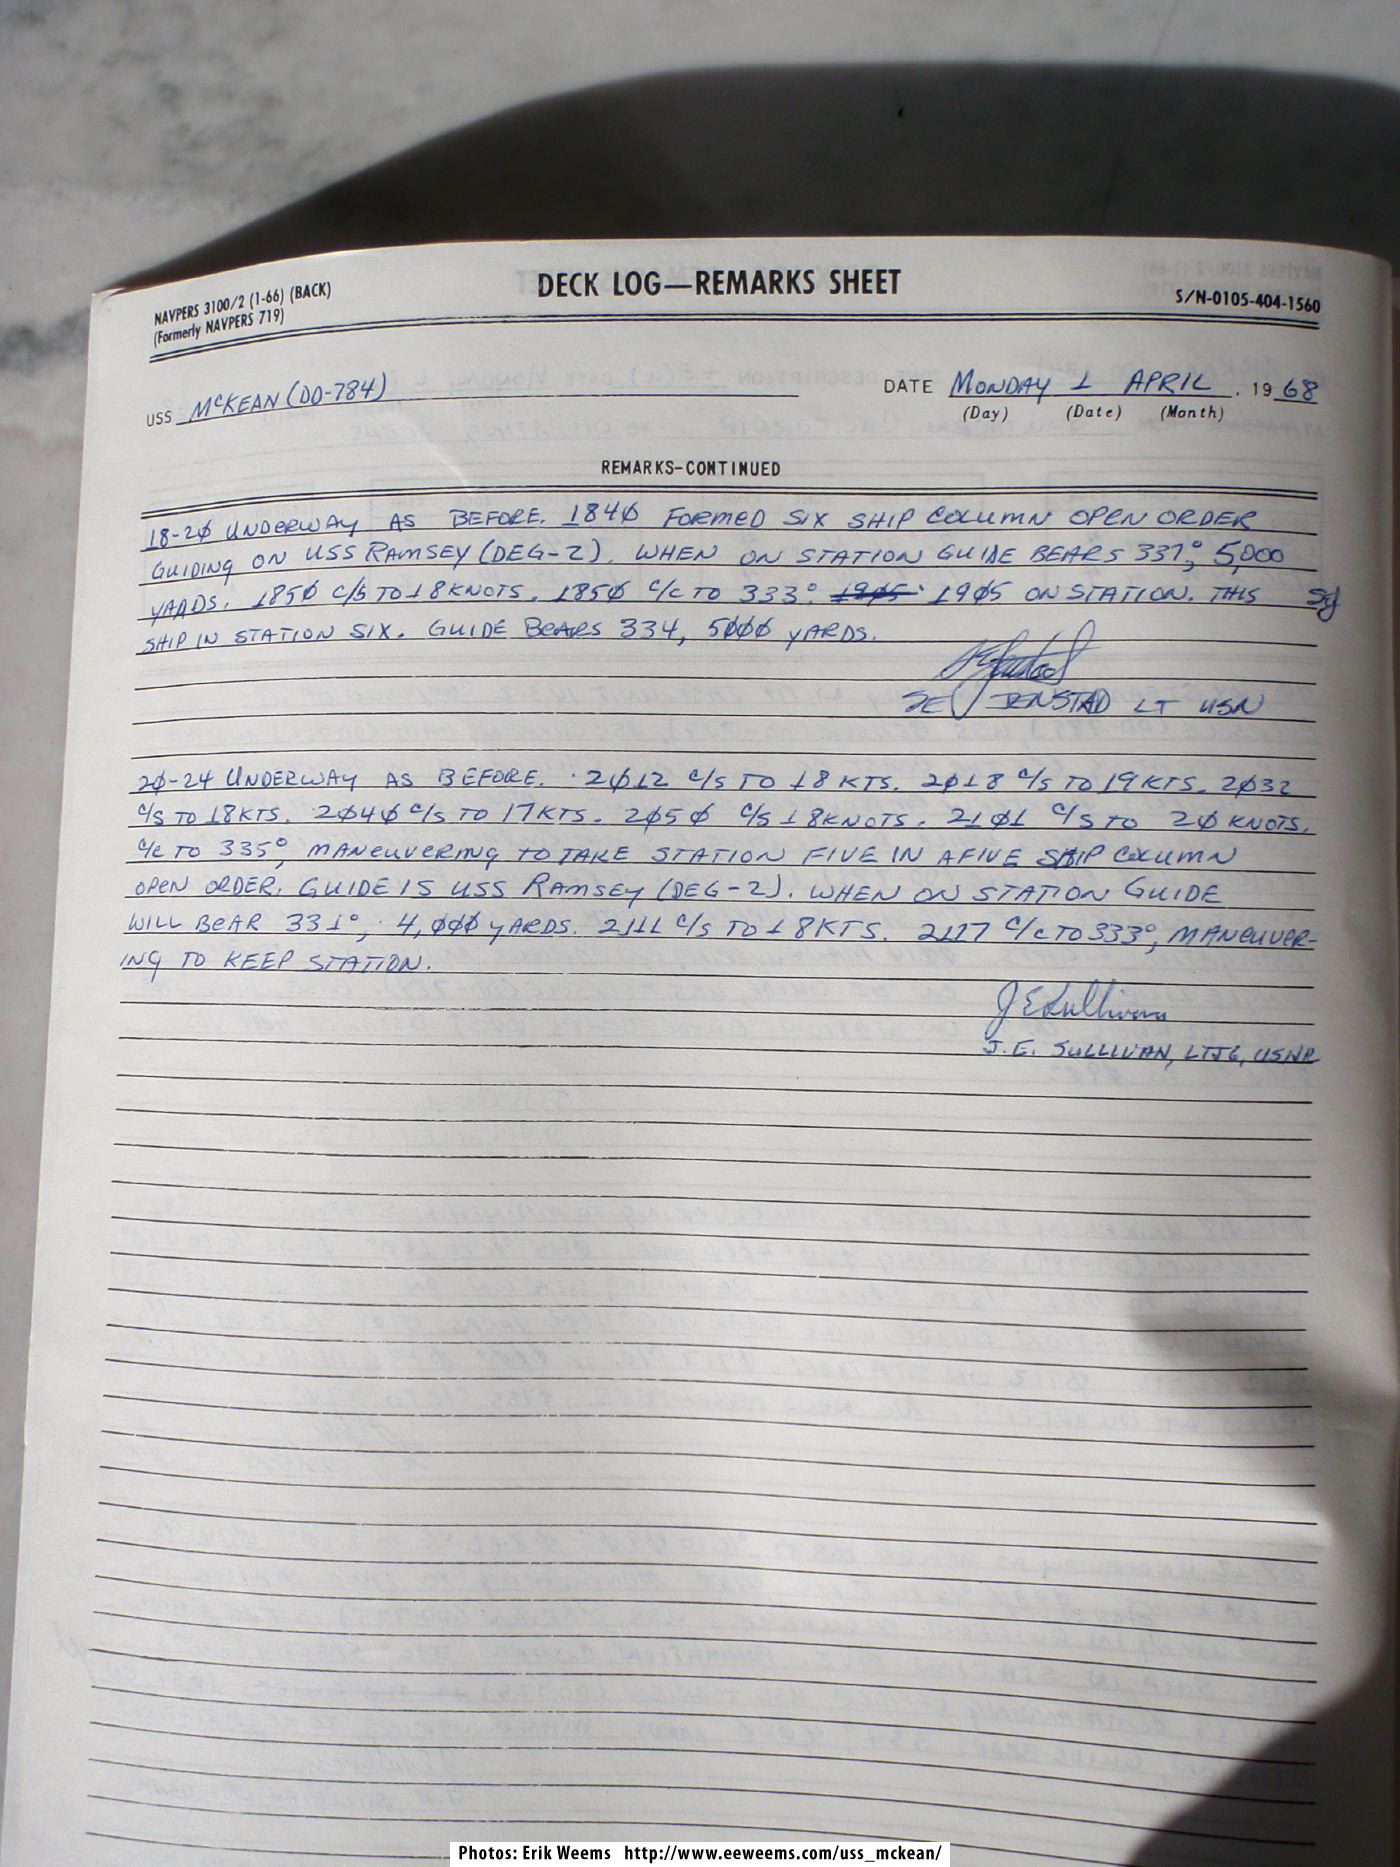 NAVPERS 3100/2 (1-66) (BACK)
(Formerly NAVPERS 719)
DECK LOG—REMARKS SHEET
S/N-0105-404-1560
USS McKEAN (DD-784)
DATE MONDAY 1 APRIL . 19 68
(Day) (Date) (Month)
REMARKS-CONTINUED
18-2Ø UNDERWAY AS BEFORE. 184Ø FORMED SIX SHIP COLUMN OPEN ORDER
GUIDING ON USS RAMSEY (DEG-2). WHEN ON STATION GUIDE BEARS 331°, 5,000
YARDS. 185Ø C/S TO 18 KNOTS. 185Ø C/C TO 333°. 19Ø5 19Ø5 ON STATION. THIS
SHIP IN STATION SIX. GUIDE BEARS 334, 5ØØØ YARDS.
JENSTAD LT USN
2Ø-24 UNDERWAY AS BEFORE. 2Ø12 C/S TO 18 KTS. 2Ø18 C/S TO 19 KTS. 2Ø32
C/S TO 18 KTS. 2Ø4Ø C/S TO 17 KTS. 2Ø5Ø C/S 18 KNOTS. 21Ø1 C/S TO 2Ø KNOTS,
C/C TO 335°, MANEUVERING TO TAKE STATION FIVE IN A FIVE SHIP COLUMN
OPEN ORDER. GUIDE IS USS RAMSEY (DEG-2). WHEN ON STATION GUIDE
WILL BEAR 331°, 4,ØØØ YARDS. 2111 C/S TO 18 KTS. 2117 C/C TO 333°, MANEUVER-
ING TO KEEP STATION.
J E Sullivan
J.E. SULLIVAN, LTJG, USNR
Photos: Erik Weems http://www.eeweems.com/uss_mckean/